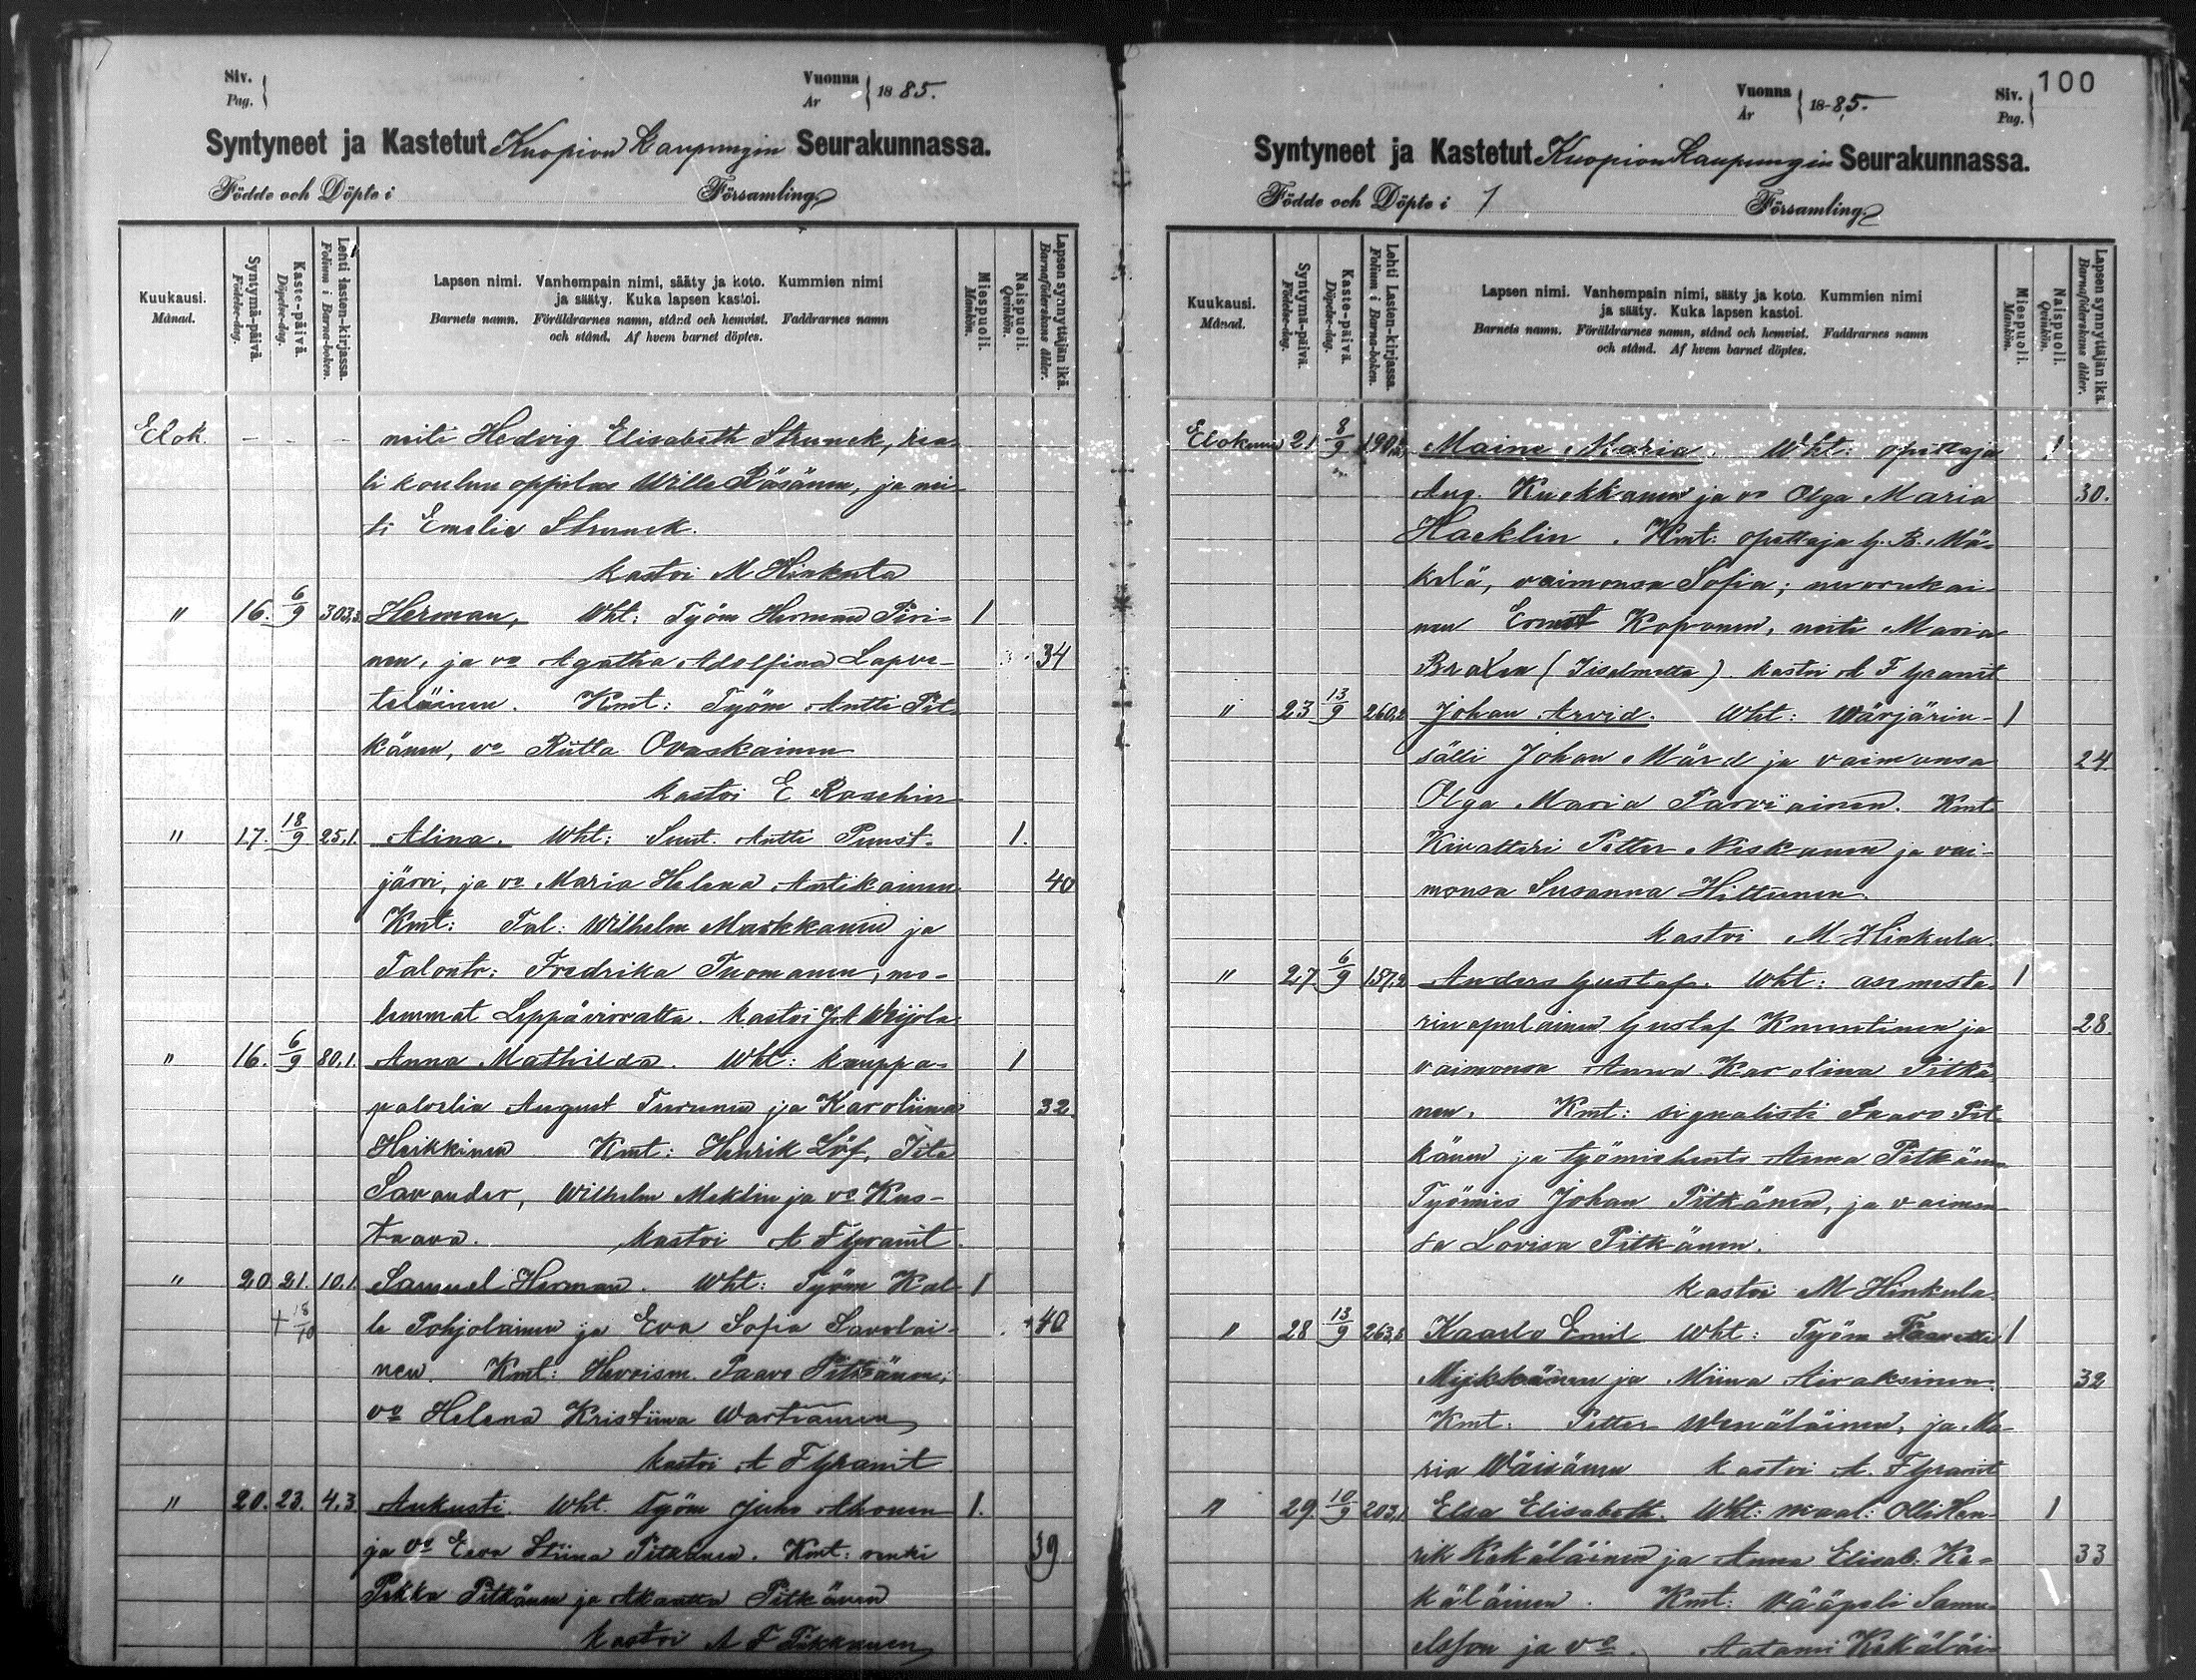 Siv.
Pag.
Vuonna
År
1885.
Syntyneet ja Kastetut Kuopion Kaupungin Seurakunnassa.
Födde och Döpte i Församling
Kuukausi.
Månad.
Syntymä-päivä.
Födelse-dag.
Kaste-päivä.
Döpelse-dag.
Lehti lasten-kirjassa.
Folium i Barna-boken.
Lapsen nimi. Vanhempain nimi, sääty ja koto. Kummien nimi
ja sääty. Kuka lapsen kastoi.
Barnets namn. Föräldrarnes namn, stånd och hemvist. Faddrarnes namn
och stånd. Af hvem barnet döptes.
Miespuoli.
Mankön.
Naispuoli.
Qvinkön.
Lapsen synnyttäjän ikä.
Barnaföderskans ålder.
Elok. - - - neiti Hedvig Elisabeth Strunck, rea-
li koulun oppilas Wille Räsänen, ja nei-
ti Emelie Strunck.
kastoi M Hinkula
" 16. 6/9 303,3. Herman, Wht: Työm Herman Piri- 1
nen, ja vo Agatha Adolfina Lapve- 34
teläinen. Kmt: Työm Antti Pit-
känen, vo Riitta Ovaskainen
kastoi E Roschier
" 17. 18/9 25,1. Alina. Wht: Suut. Antti Punst- 1.
järvi, ja vo Maria Helena Antikainen 40
Kmt: Tal: Wilhelm Markkanen ja
Talontr: Fredrika Tuomanen, mo-
lemmat Leppävirralta. kastoi
" 16. 6/9 80,1. Anna Mathilda. Wht: kauppa- 1
palvelia August Turunen ja Karoliina 32
Heikkinen Kmt: Henrik Löf, Iita
Savander, Wilhelm Meklin ja vo Kus-
taava. kastoi A F Granit
" 20. 21. 10.1. Samuel Herman. Wht: Työm Kal- 1
+ 18/10 le Pohjolainen ja Eva Sofia Savolai- 40
nen. Kmt: Hevoism. Paavo Pitkänen,
vo Helena Kristiina Wartiainen
kastoi A F Granit
" 20. 23. 4.3 Aukusti. Wht. Työm Juho Ahonen 1.
ja vo Eeva Stiina Pitkänen. Kmt: renki 39
Pekka Pitkänen ja Akaatta Pitkänen
kastoi A F Pukkanen
100
Vuonna
År
1885.
Siv.
Pag.
Syntyneet ja Kastetut Kuopion Kaupungin Seurakunnassa.
Födde och Döpte i Församling
Kuukausi.
Månad.
Syntymä-päivä.
Födelse-dag.
Kaste-päivä.
Döpelse-dag.
Lehti Lasten-kirjassa.
Folium i Barna-boken.
Lapsen nimi. Vanhempain nimi, sääty ja koto. Kummien nimi
ja sääty. Kuka lapsen kastoi.
Barnets namn. Föräldrarnes namn, stånd och hemvist. Faddrarnes namn
och stånd. Af hvem barnet döptes.
Miespuoli.
Mankön.
Naispuoli.
Qvinkön.
Lapsen synnyttäjän ikä.
Barnaföderskans ålder.
Elokuu 21 8/9 Maine Maria. Wht: opettaja 1
Aug. Kuokkanen ja vo Olga Maria 30.
Hacklin. Kmt: opettaja G. B. Mä-
kelä, vaimonsa Sofia; nuorukai-
nen Ernst Koponen, neiti Maria
Braxen (Iisalmelta) kastoi A F Granit
" 23 13/9 260,2 Johan Arvid. Wht: Wärjärin- 1
sälli Johan Märd ja vaimonsa 24.
Olga Maria Parviainen. Kmt
Kivalteri Petter Niskanen ja vai-
monsa Susanna Hiltunen.
kastoi M Hinkula.
" 27. 6/9 157,2 Anders Gustaf. Wht: asemesta- 1
rinapulainen Gustaf Knuutinen ja 28.
vaimonsa Anna Karolina Pitkä-
nen. Kmt: signalisti Paavo Pit-
känen ja työmiehents Anna Pitkänen
Työmies Johan Pitkänen, ja vaimon-
sa Lovisa Pitkänen.
kastoi M Hinkula.
" 28 13/9 263,5 Kaarlo Emil Wht: Työm Taavetti 1
Mykkänen ja Miina Airaksinen. 32
Kmt: Petter Wenäläinen, ja Ma-
ria Wäisänen kastoi A. F Granit
" 29. 10/9 203,1 Elsa Elisabeth. Wht: maal: Olli Hen- 1
rik Kekäläinen ja Anna Elisab. Ke- 33
käläinen. Kmt: Vääpeli Samu-
elsson ja vo. Aatami Kekäläi-